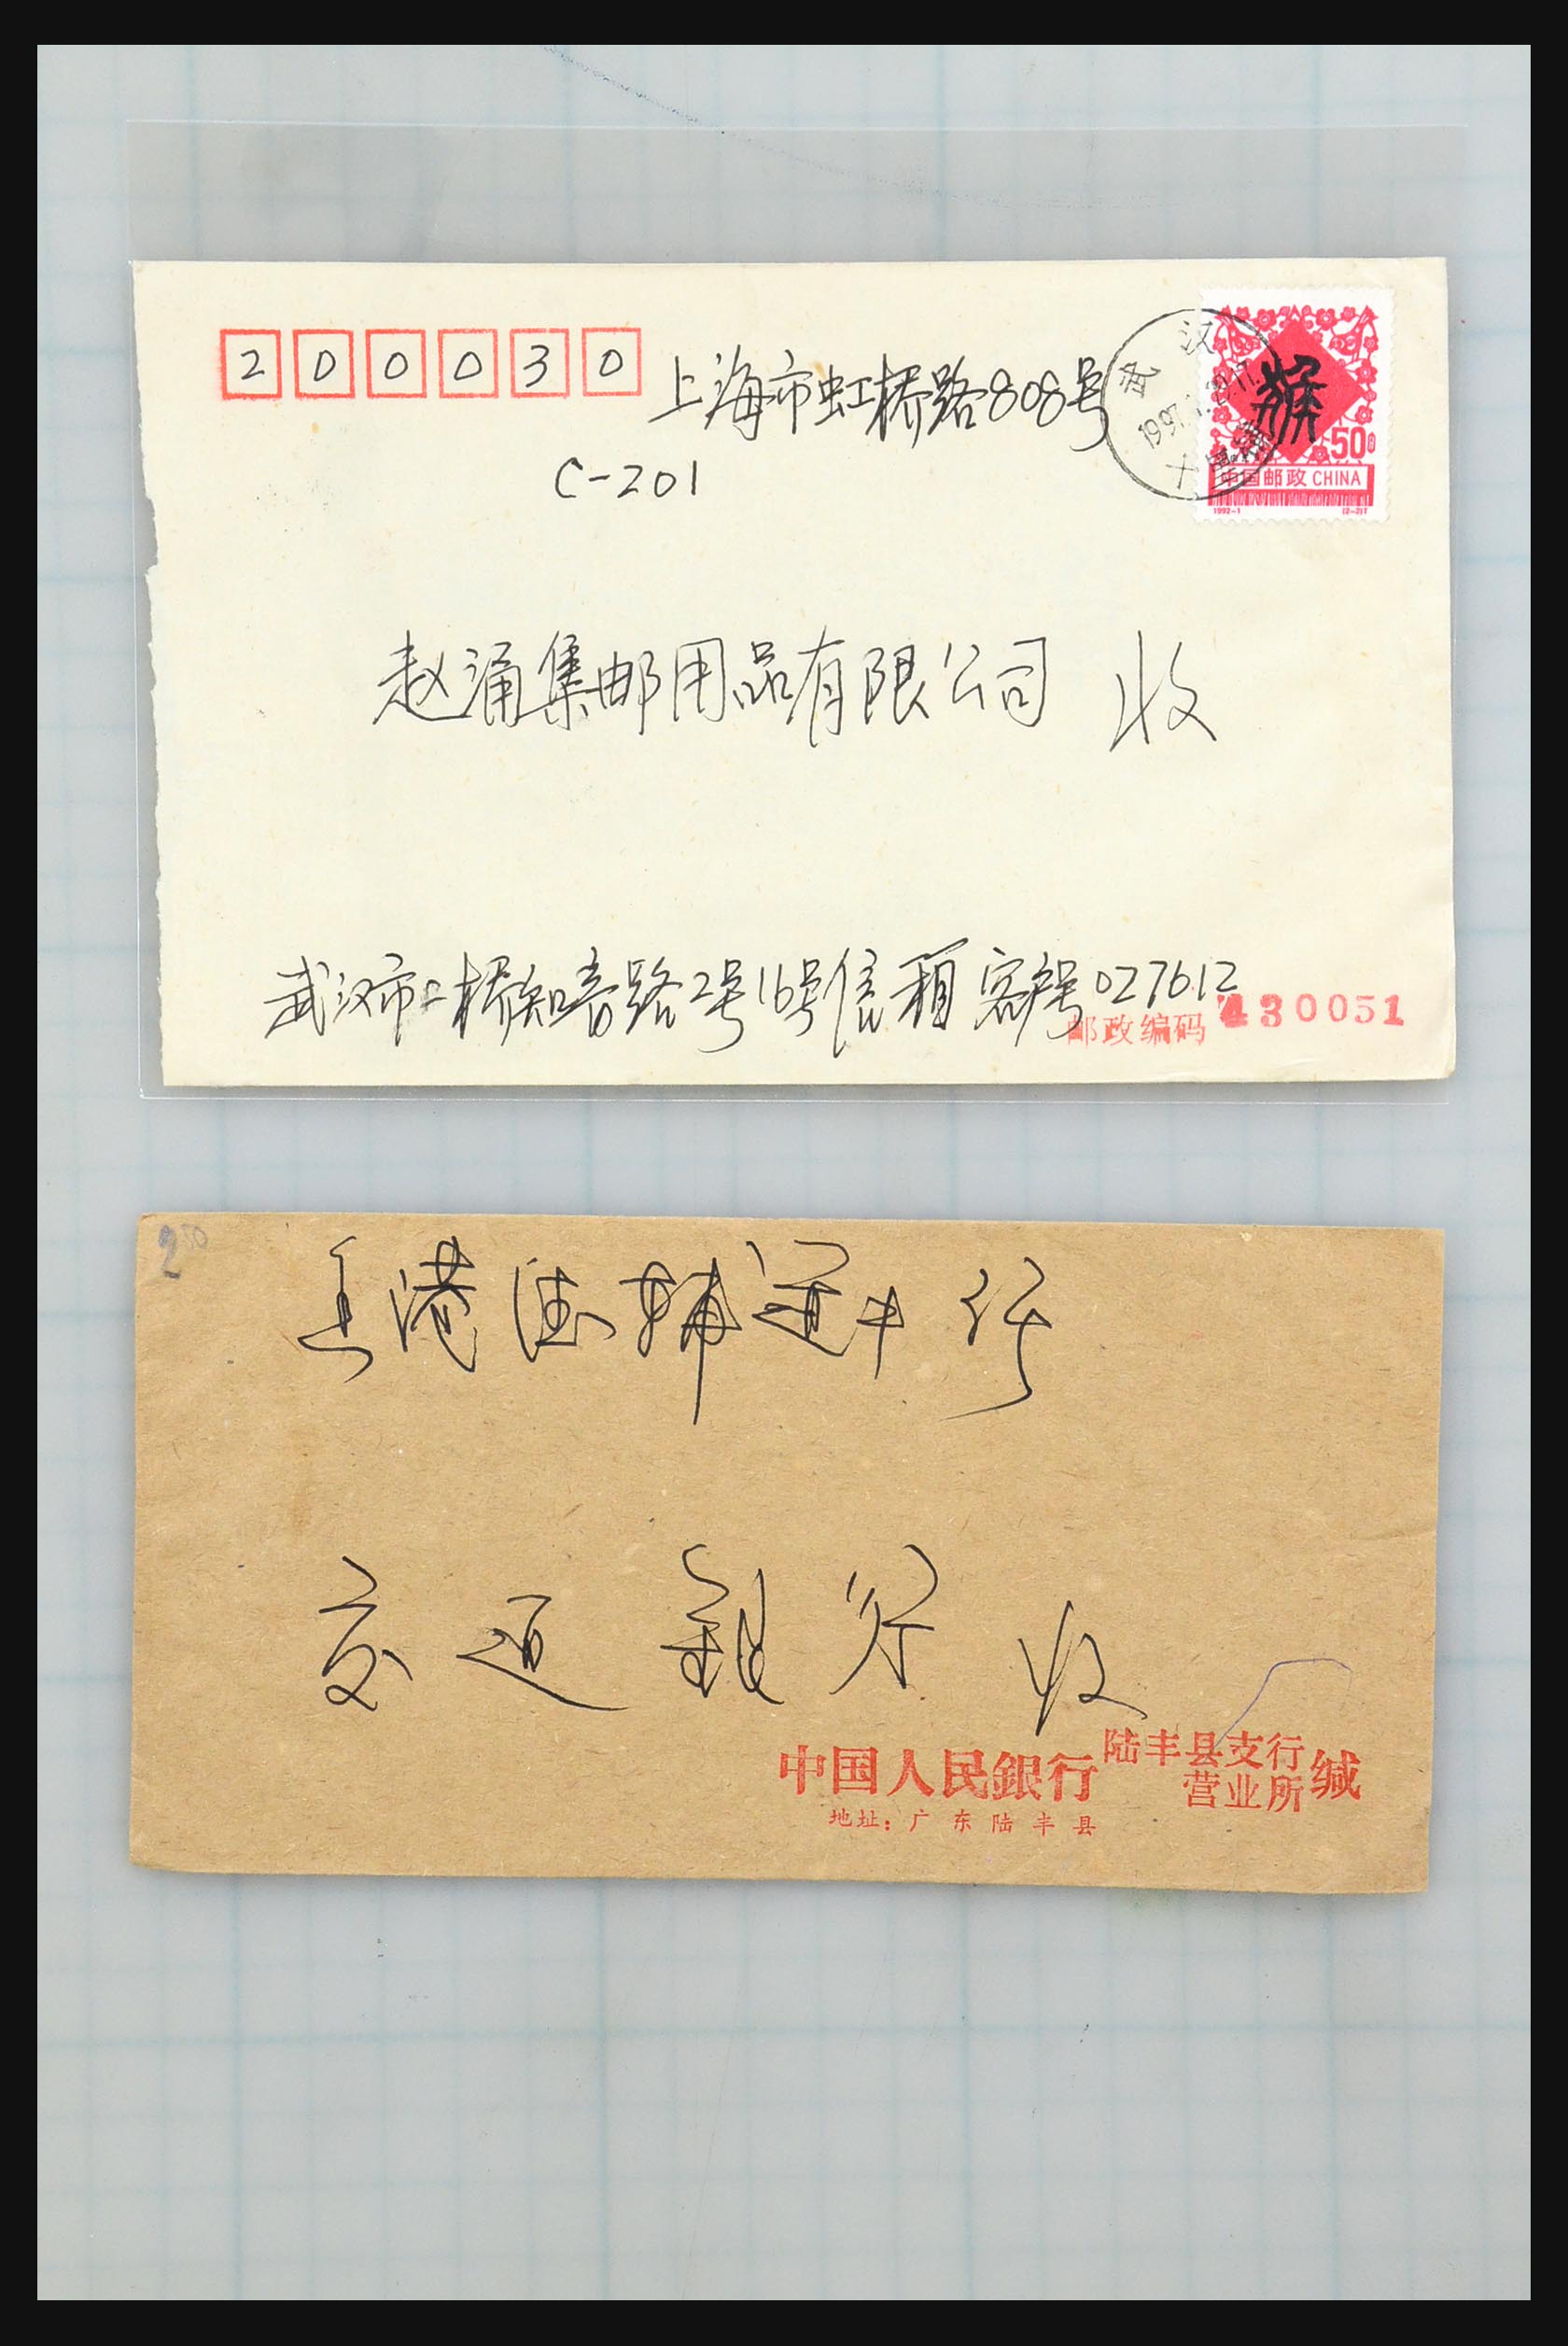 200030
上海市虹桥路808号
C-201
武汉
1997.
十里
猴
50分
中国邮政 CHINA
1992-1 (2-2)T
赵涌集邮用品有限公司 收
武汉市二桥知音路2号16号信箱 客户号027612
邮政编码 430051
2⁵⁰
香港德辅道中行
交通銀行 收
中国人民銀行 陆丰县支行
营业所 缄
地址：广东陆丰县